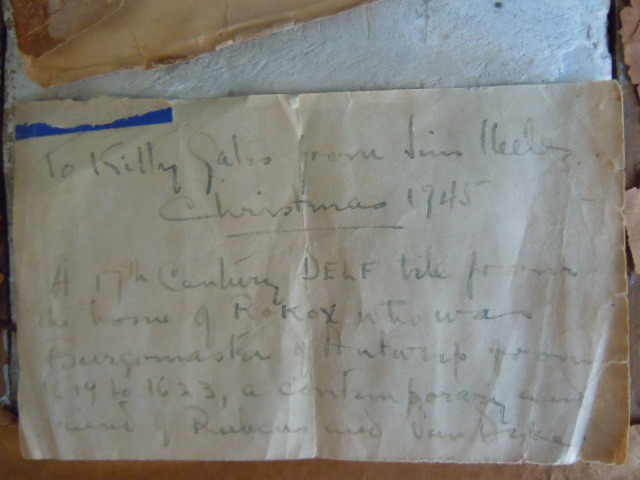 To Kitty Gates from Jim
Christmas 1945
A 17th Century DELF tile from
the home of ROKOX who was
Burgomaster of Antwerp from
1619 to 1623, a contemporary and
friend of Rubens and Van Dyke.